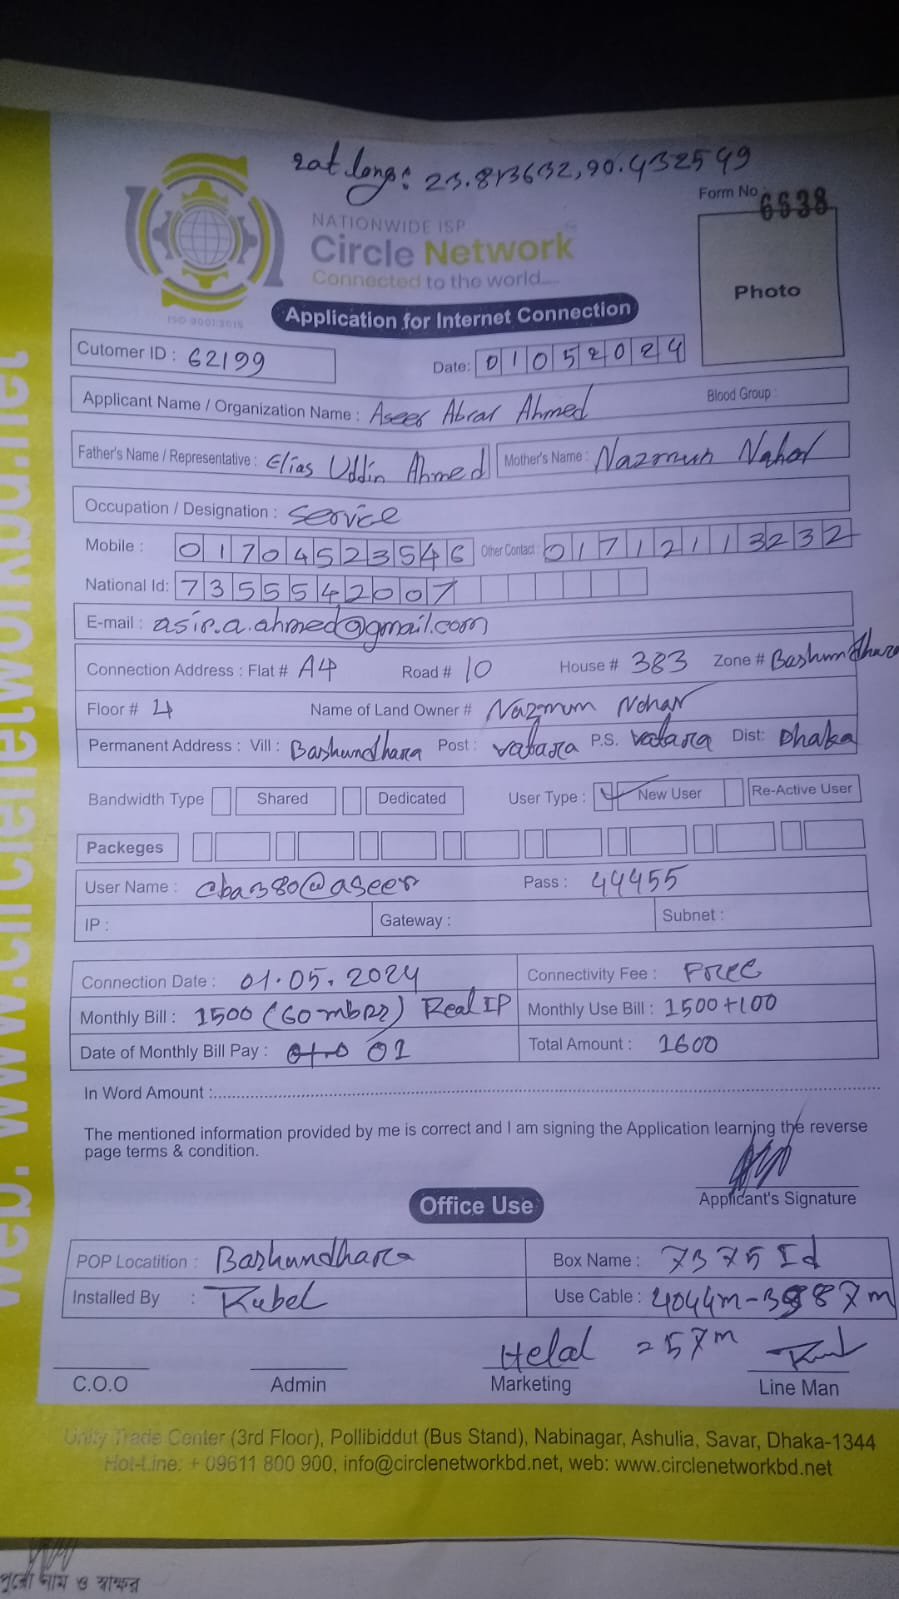 Lat long: 23.813632,90.432549
Form No : 6638
NATIONWIDE ISP
Circle Network
Connected to the world.....
ISO 9001:2015
Photo
Application for Internet Connection
Cutomer ID : 62199
Date: 01052024
Applicant Name / Organization Name : Aseer Abrar Ahmed
Blood Group :
Father's Name / Representative : Elias Uddin Ahmed
Mother's Name : Nazmun Nahar
Occupation / Designation : Service
Mobile : 01704523546 Other Contact : 01712113232
National Id: 7355542007
E-mail : asir.a.ahmed@gmail.com
Connection Address : Flat # A4 Road # 10 House # 383 Zone # Bashundhara
Floor # 4 Name of Land Owner # Nazmum Nohar
Permanent Address : Vill : Bashundhara Post : vatara P.S. vatara Dist: Dhaka
Bandwidth Type Shared Dedicated User Type : New User Re-Active User
Packeges
User Name : cba380@aseer Pass : 44455
IP : Gateway : Subnet :
Connection Date : 01.05.2024 Connectivity Fee : Free
Monthly Bill : 1500 (60 mbps) Real IP Monthly Use Bill : 1500+100
Date of Monthly Bill Pay : 01 Total Amount : 1600
In Word Amount :
The mentioned information provided by me is correct and I am signing the Application learning the reverse
page terms & condition.
Applicant's Signature
Office Use
POP Locatition : Bashundhara Box Name : 7375 Id
Installed By : Rubel Use Cable : 4044m-3987m
Helal = 57m
C.O.O Admin Marketing Line Man
Unity Trade Center (3rd Floor), Pollibiddut (Bus Stand), Nabinagar, Ashulia, Savar, Dhaka-1344
Hot-Line: + 09611 800 900, info@circlenetworkbd.net, web: www.circlenetworkbd.net
web: www.circlenetworkbd.net
পুরো নাম ও স্বাক্ষর